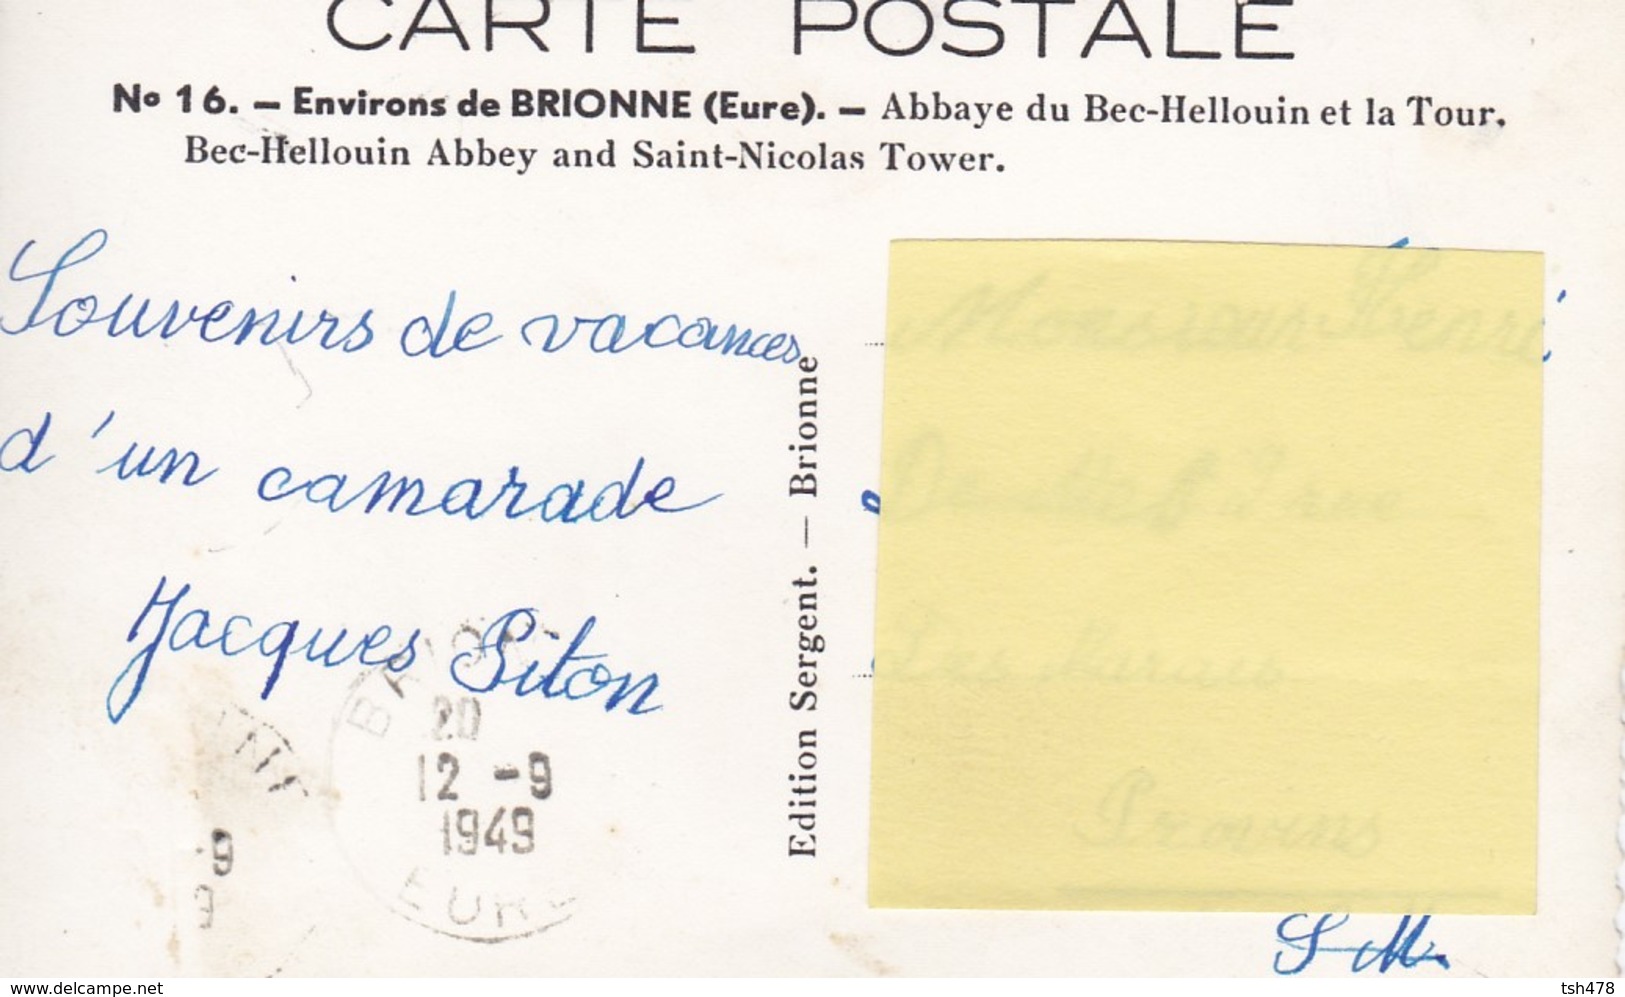 CARTE POSTALE
No 16. — Environs de BRIONNE (Eure). — Abbaye du Bec-Hellouin et la Tour.
Bec-Hellouin Abbey and Saint-Nicolas Tower.
Souvenirs de vacances
d'un camarade
Jacques Piton
20
12 -9
1949
EURE
-9
9
Edition Sergent. — Brionne
Monsieur Henri
rue
Provins
S M.
www.delcampe.net
tsh478